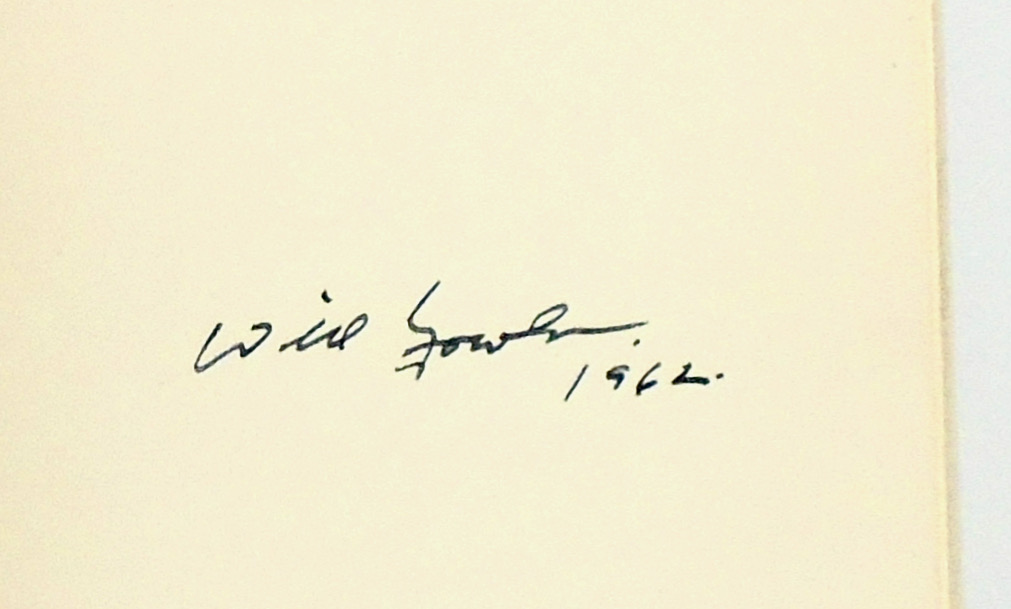 Will Fowler.
1962.